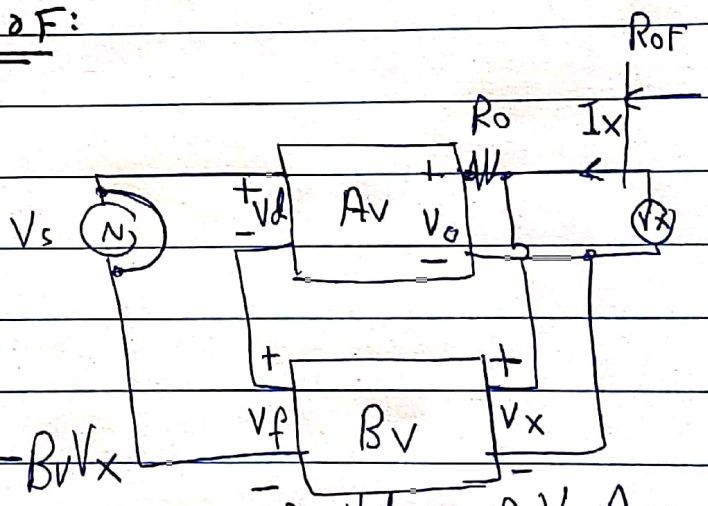 oF:
RoF
Ro
Ix
+
+
Vs
N
Vd
Av
Vo
Vx
-
-
+
+
Vf
Bv
Vx
-BvVx
-
-